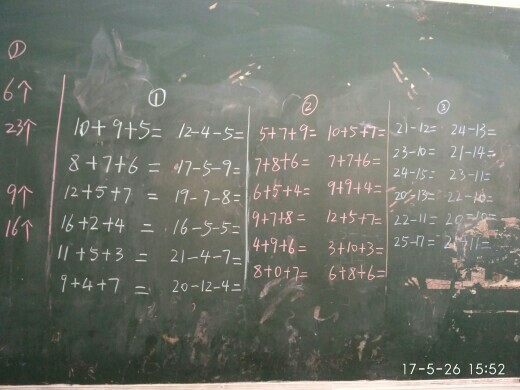 ①
6个
23个
9个
16个
①
10+9+5= 12-4-5=
8+7+6= 17-5-9=
12+5+7= 19-7-8=
16+2+4= 16-5-5=
11+5+3= 21-4-7=
9+4+7= 20-12-4=
②
5+7+9= 10+5+7=
7+8+6= 7+7+6=
6+5+4= 9+9+4=
9+7+8= 12+5+7=
4+9+6= 3+10+3=
8+0+7= 6+8+6=
③
21-12= 24-13=
23-10= 21-14=
24-15= 23-11=
20-13= 22-10=
22-11=
25-17=
17-5-26 15:52